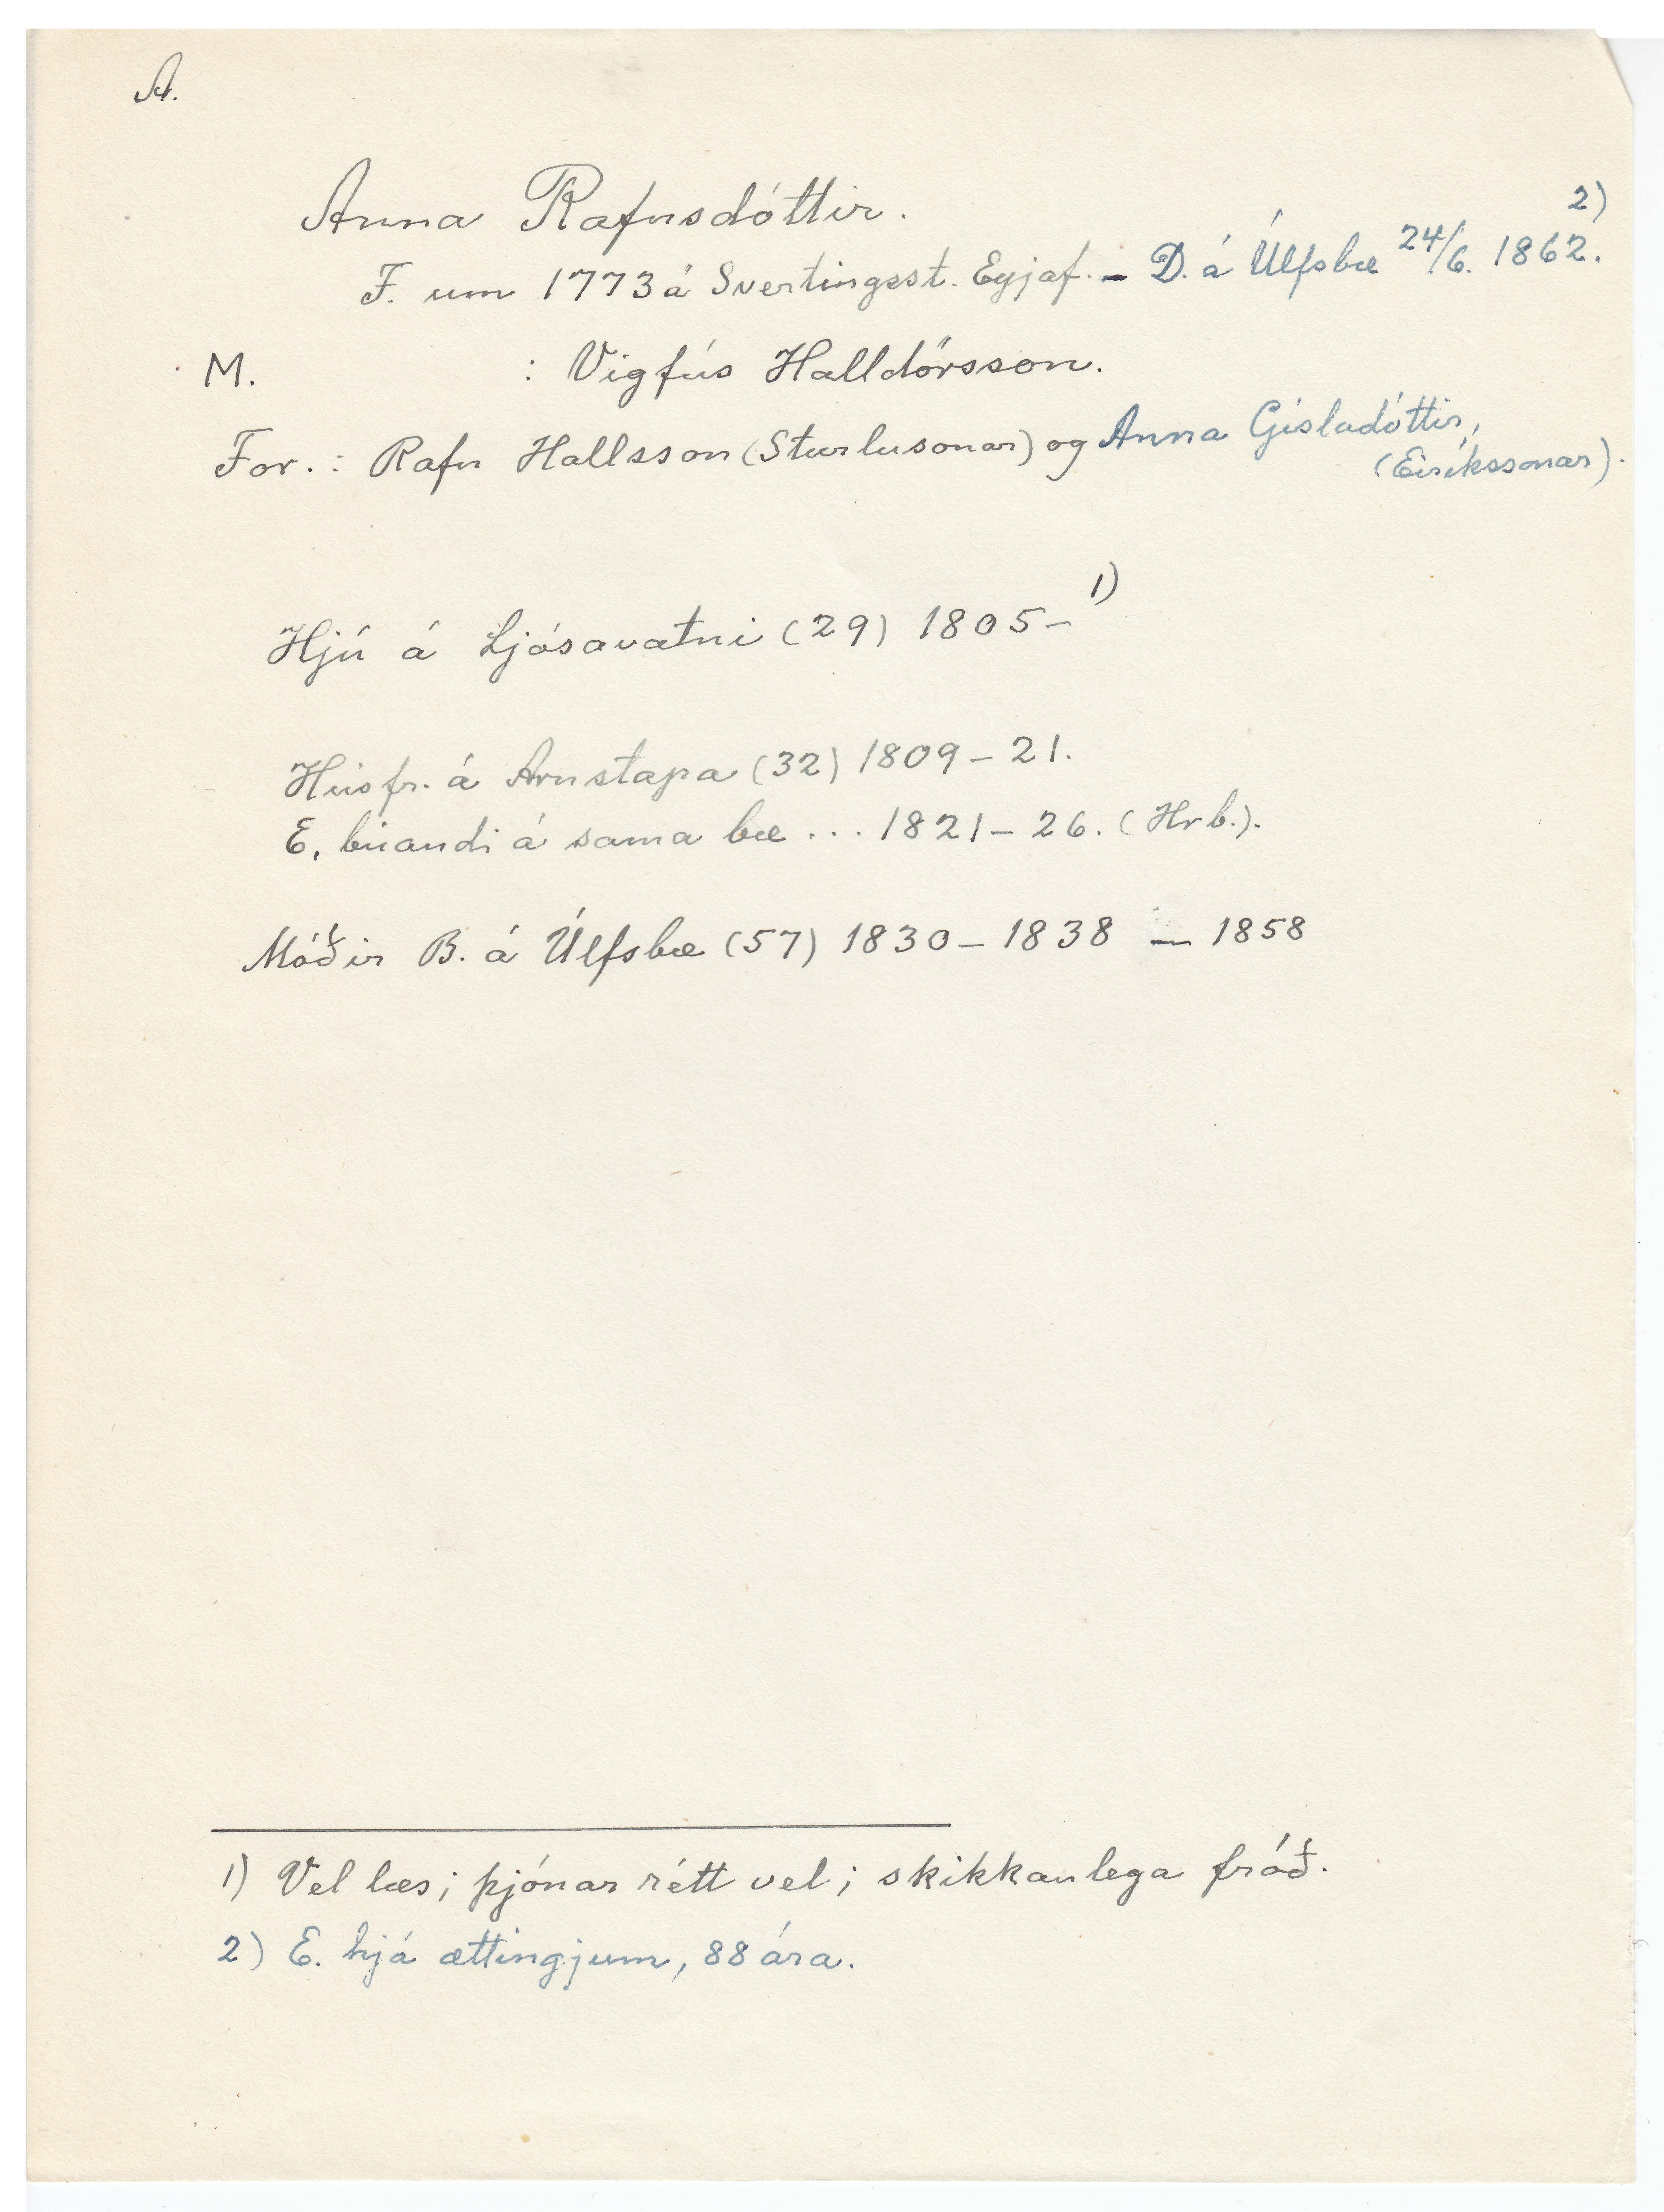 A.
Anna Rafnsdóttir.
F. um 1773 á Svertingsst. Eyjaf. – D. á Úlfsbæ 24/6. 1862. 2)
M. : Vigfús Halldórsson.
For.: Rafn Hallsson (Sturlusonar) og Anna Gísladóttir,
(Eiríkssonar).
Hjú á Ljósavatni (29) 1805– 1)
Húsfr. á Arnstapa (32) 1809–21.
E. búandi á sama bæ ... 1821–26. (Hrb.).
Móðir B. á Úlfsbæ (57) 1830–1838 – 1858
1) Vel læs; þjónar rétt vel; skikkanlega fróð.
2) E. hjá ættingjum, 88 ára.